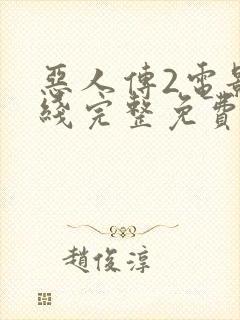 惡人傳2電影
綫完整免費
趙俊淳